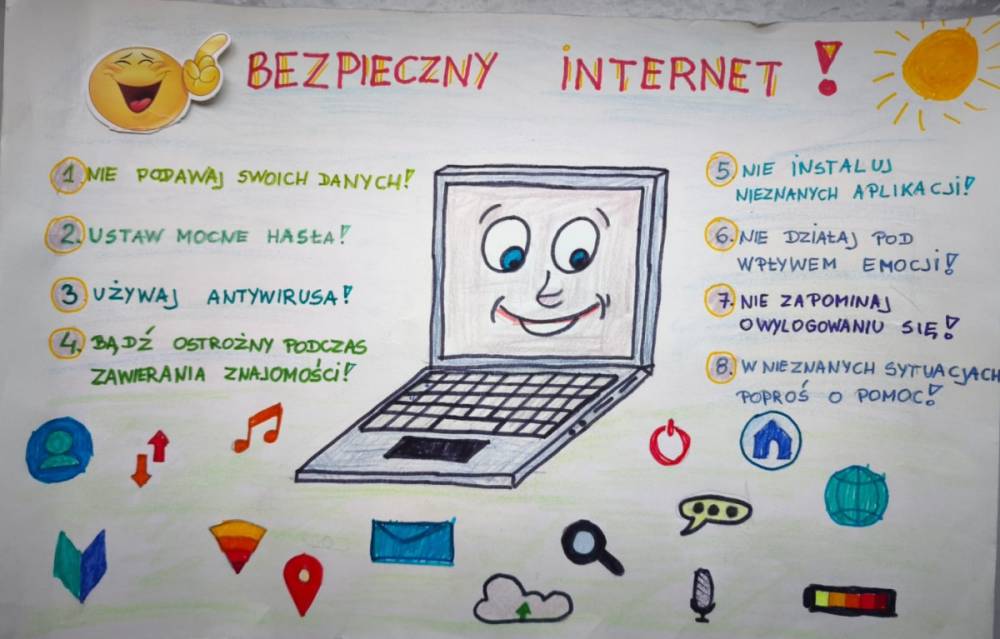 BEZPIECZNY INTERNET!
1 NIE PODAWAJ SWOICH DANYCH!
2. USTAW MOCNE HASŁA!
3 UŻYWAJ ANTYWIRUSA!
4. BĄDŹ OSTROŻNY PODCZAS
ZAWIERANIA ZNAJOMOŚCI!
5 NIE INSTALUJ
NIEZNANYCH APLIKACJI!
6. NIE DZIAŁAJ POD
WPŁYWEM EMOCJI!
7. NIE ZAPOMINAJ
O WYLOGOWANIU SIĘ!
8. W NIEZNANYCH SYTUACJACH
POPROŚ O POMOC!